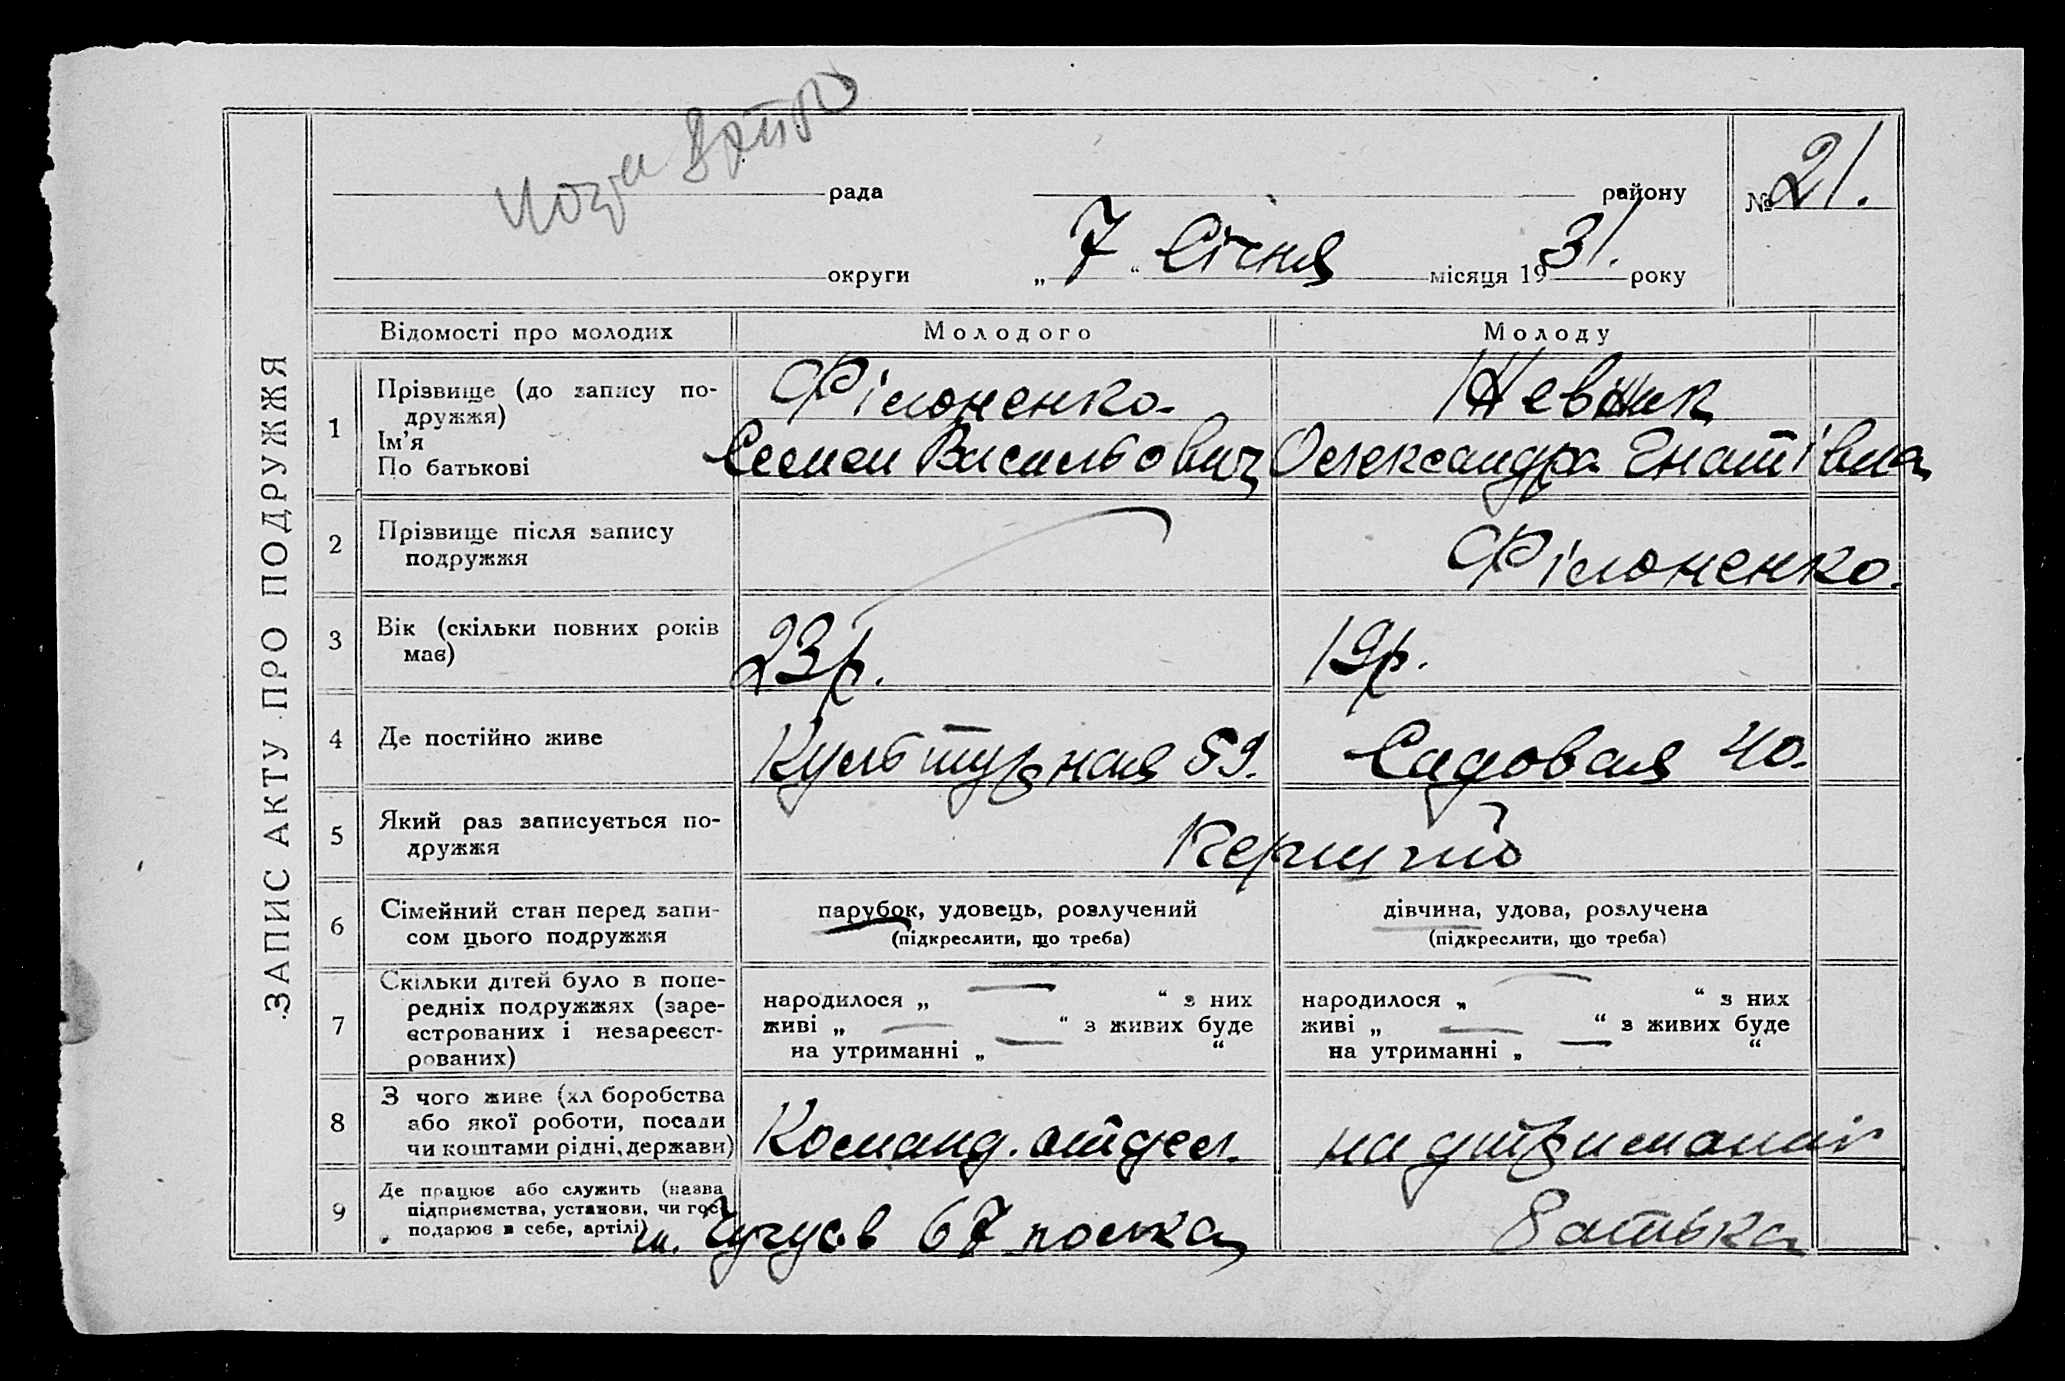 ЗАПИС АКТУ ПРО ПОДРУЖЖЯ
рада району № 21.
округи „ 7 “ Січня місяця 1931. року
Відомості про молодих Молодого Молоду
1 Прізвище (до запису по-
дружжя)
Ім’я
По батькові
Філоненко.
Семен Васильович
Олександра Гнатівна
2 Прізвище після запису
подружжя
Філоненко.
3 Вік (скільки повних років
має)
23 р.
19 р.
4 Де постійно живе
Культурная 59.
Садовая 40.
5 Який раз записується по-
дружжя
6 Сімейний стан перед запи-
сом цього подружжя
парубок, удовець, розлучений
(підкреслити, що треба)
дівчина, удова, розлучена
(підкреслити, що треба)
7 Скільки дітей було в попе-
редніх подружжях (заре-
єстрованих і незареєст-
рованих)
народилося „ — “ з них
живі „ — “ з живих буде
на утриманні „ — “
народилося „ — “ з них
живі „ — “ з живих буде
на утриманні „ — “
8 З чого живе (хл боробства
або якої роботи, посади
чи коштами рідні, держави)
Команд. отдел.
на утриманні
9 Де працює або служить (назва
підприємства, установи, чи гос-
подарює в себе, артілі)
м. Чугуєв 67 полка
батька